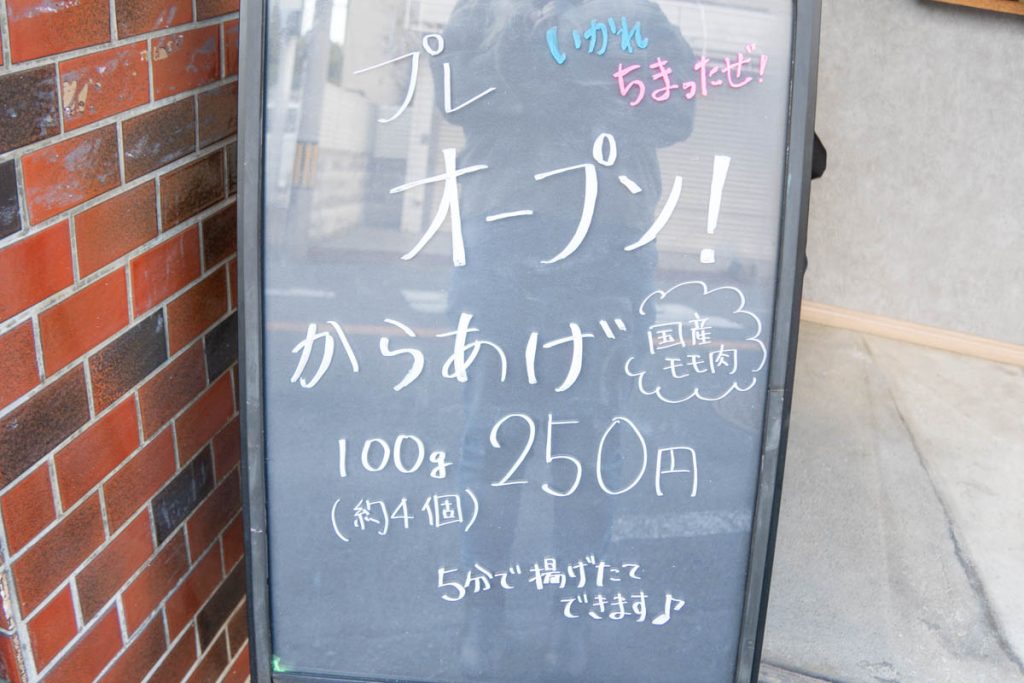 プレ
いかれ
ちまったぜ!
オープン!
からあげ
国産
モモ肉
100g 250円
(約4個)
5分で揚げたて
できます♪